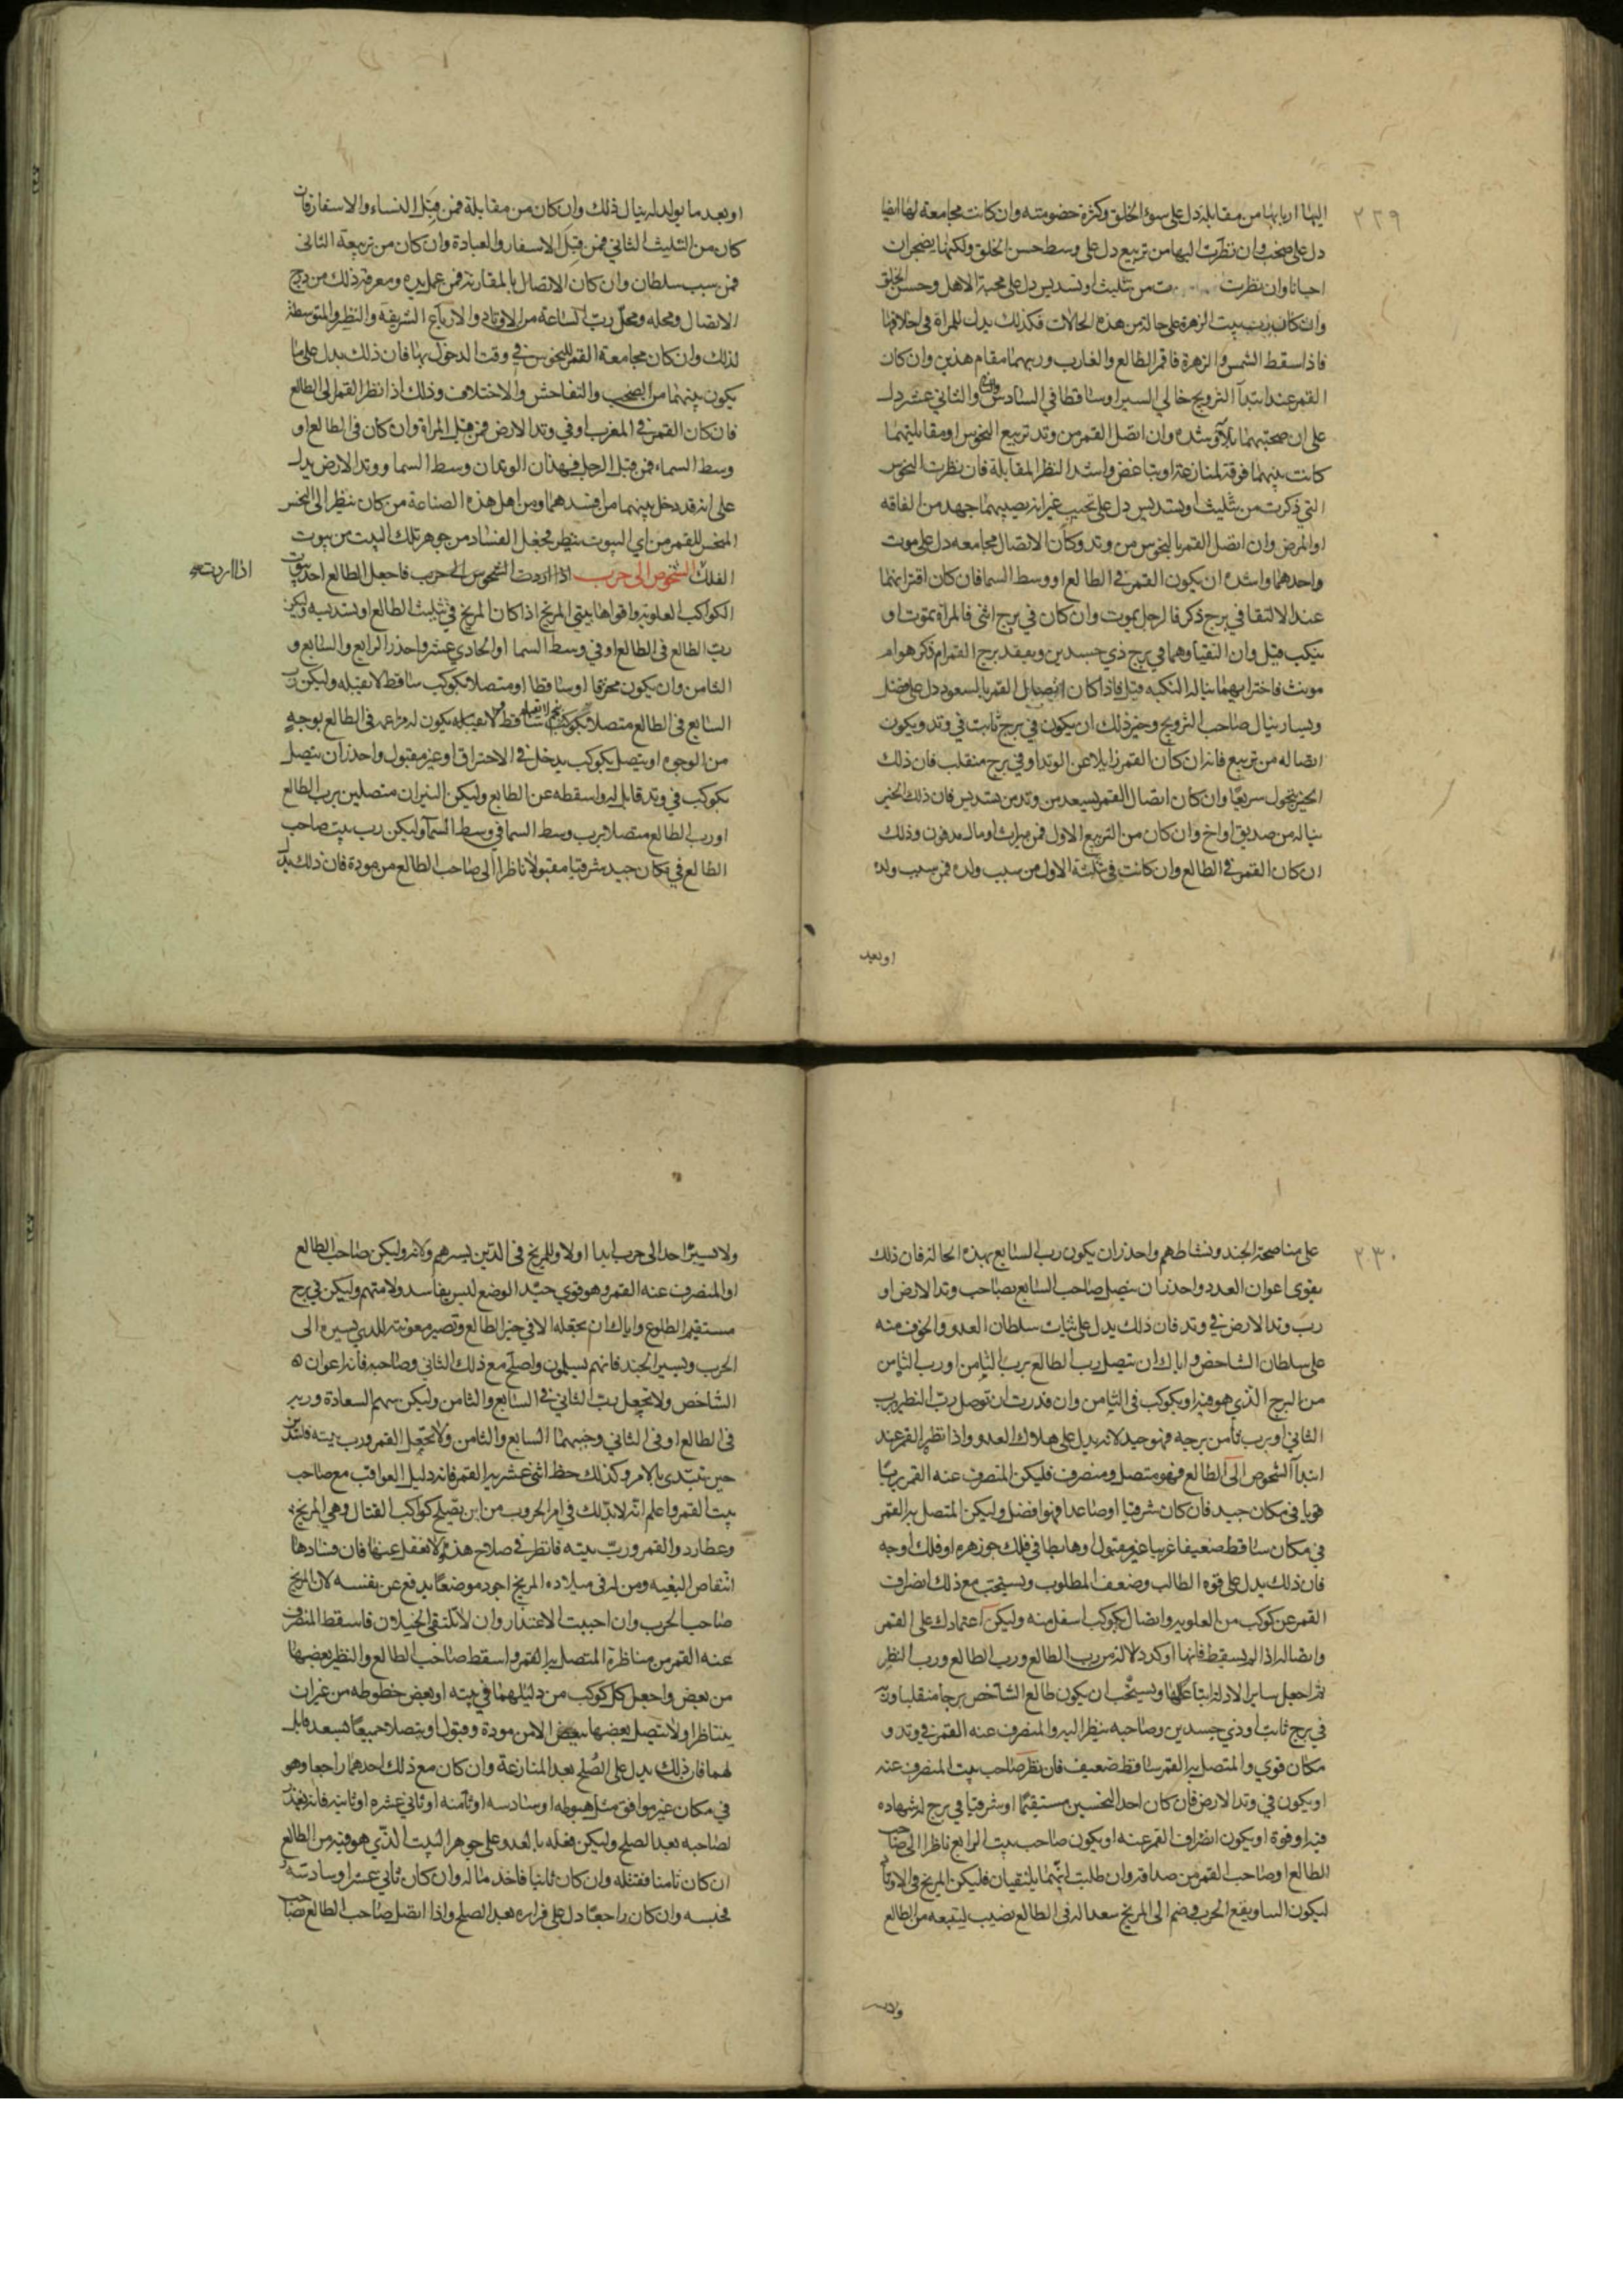 ٢٢٩
اليها اربابها من مقابلة دل على سوء الخلق وكثرة خصومته وان كانت مجامعة لها ايضا
دل على صخب وان نظرت اليها من تربيع دل على وسط حسن الخلق ولكنها يضجران
احيانا وان نظرت من تثليث او تسديس دل على محبة الاهل وحسن الخلق
وان كان رب بيت الزهرة على حالة من هذه الحالات فكذلك يدل للمراة في اخلاقها
فاذا سقط الشمس والزهرة فاقم الطالع والغارب وربهما مقام هذين وان كان
القمر عند ابتدآ التزويج خالي السير او ساقطا في السادس والثاني عشر دل
على ان صحبتهما بلآء وشدة وان اتصل القمر من وتد تربيع النحوس او مقابلتهما
كانت بينهما فرقة لمنازعة او تباغض واشد النظر المقابلة فان نظرت النحوس
التي ذكرت من تثليث او تسديس دل على تحبب غير انه يصيبهما جهد من الفاقه
او المرض وان اتصل القمر بالنحوس من وتد وكان الاتصال مجامعه دل على موت
واحدهما واشده ان يكون القمر في الطالع او وسط السما فان كان اقترانهما
عند الالتقا في برج ذكر فالرجل يموت وان كان في برج انثى فالمراة تموت او
ينكب قبل وان التقيا وهما في برج ذي جسدين ويعقد برج القمر ام ذكر هو ام
مونث فاخترا بهما ينالها النكبه قبل فاذا كان اتصال القمر بالسعود دل على فضل
ويسار ينال صاحب التزويج وخير ذلك ان يكون في برج ثابت في وتد ويكون
اتصاله من تربيع فانه ان كان القمر زايلا عن الوتد او في برج منقلب فان ذلك
الخير يتحول سريعًا وان كان اتصال القمر بسعد من وتد من تسديس فان ذلك الخير
يناله من صديق او اخ وان كان من التربيع الاول فمن ميراث او مال مدفون وذلك
ان كان القمر في الطالع وان كانت في تثليثه الاول من سبب ولده فمن سبب ولده
او بعد
او بعد ما يولد له ينال ذلك وان كان من مقابلة فمن قِبَل النساء والاسفار فان
كان من التثليث الثاني فمن قِبَل الاسفار والعبادة وان كان من تربيعه الثاني
فمن سبب سلطان وان كان الاتصال بالمقارنة فمن عمل يده ومعرفة ذلك من برج
الاتصال ومحله ومحلّ ربّ الساعة من الاوتاد والارباع الشريفة والنظر والمتوسطة
لذلك وان كان مجامعة القمر للنحوس في وقت الدخول بها فان ذلك يدل على ما
يكون بينهما من الصخب والتفاحش والاختلاف وذلك اذا نظر القمر الى الطالع
فان كان القمر في المغرب او في وتد الارض فمن قبل المراة وان كان في الطالع او
وسط السماء فمن قبل الرجل فهذان الوتدان وسط السما ووتد الارض يدل
على انه قد دخل بينهما من افسدهما ومن اهل هذه الصناعة من كان ينظر الى النحس
المنحس للقمر من اي البيوت ينظر فجعل الفساد من جوهر تلك البيت من بيوت
الفلك الشخوص الى حرب اذا اردت الشخوص الى حرب فاجعل الطالع احد بيوت
اذا اردت
الكواكب العلويه واقواها بيتي المريخ اذا كان المريخ في تثليث الطالع او تسديسه وليكن
ربّ الطالع في الطالع او في وسط السما او الحادي عشر واحذر الرابع والسابع و
الثامن وان يكون محترقا او ساقطا او متصلا بكوكب ساقط لا يقبله وليكن رب
السابع في الطالع متصلا بكوكب ساقط لا يقبله يكون له مزاعمه في الطالع بوجه
من الوجوه او يتصل بكوكب يدخل في الاحتراق او غير مقبول واحذر ان يتصل
بكوكب في وتد قابل له واسقطه عن الطالع وليكن النيران متصلين برب الطالع
او رب الطالع متصلا برب وسط السما في وسط السمآ وليكن رب بيت صاحب
الطالع في مكان جيد مشرقيا مقبولا ناظرا الى صاحب الطالع من مودة فان ذلك يدل
٢٣٠
على مناصحة الجند ونشاطهم واحذر ان يكون رب السابع بهذه الحالة فان ذلك
يقوى اعوان العدو واحذر ان يتصل صاحب السابع بصاحب وتد الارض او
رب وتد الارض في وتد فان ذلك يدل على ثبات سلطان العدو والخوف منه
على سلطان الشاخص واياك ان يتصل رب الطالع برب الثامن او رب الثامن
من البرج الذي هو فيه او بكوكب في الثامن وان قدرت ان توصل ربّ النظير برب
الثاني او برب ثامن برجه فهو جيد لانه يدل على هلاك العدو واذا نظر القمر عند
ابتدآ الشخوص الى الطالع فهو متصل ومنصرف فليكن المنصرف عنه القمر بريًا
قويا في مكان جيد فان كان شرقيا او صاعدا فهو افضل وليكن المتصل به القمر
في مكان ساقط ضعيفا غربيا غير مقبول او هابطا في فلك جوزهره او فلك اوجه
فان ذلك يدل على قوه الطالب وضعف المطلوب ويستحب مع ذلك انصراف
القمر عن كوكب من العلويه واتصال بكوكب اسفل منه وليكن اعتمادك على القمر
واتصاله اذا لم يسقط فانها اوكد دلالة من رب الطالع ورب الطالع ورب النظر
ثم اجعل ساير الادلة اتباعًا لها ويستحب ان يكون طالع الشاخص برجا منقلبا وربه
في برج ثابت او ذي جسدين وصاحبه ينظر اليه والمنصرف عنه القمر في وتد و
مكان قوي والمتصل به القمر ساقط ضعيف فان نظر صاحب بيت المنصرف عنه
او يكون في وتد الارض فان كان احد النحسين مستقيمًا او شرقيا في برج له شهاده
فيه او قوة او يكون انصراف القمر عنه او يكون صاحب بيت الرابع ناظرا الى صاحب
الطالع او صاحب القمر من صداقه وان طلبت انهما يلتقيان فليكن المريخ في الاوتاد
ليكون اللقا ويقع الحرب فضم الى المريخ سعدا له في الطالع نصيب ليتبعه من الطالع
ولا يسير
ولا تسيرّ احدا الى حرب ابدا اولا وللمريخ في الذين يسيرهم ولايه وليكن صاحب الطالع
او المنصرف عنه القمر وهو قوي جيّد الوضع ليس بفاسد ولا متهم وليكن في برج
مستقيم الطلوع واياك ان تجعله الا في حيز الطالع وتصير معونته للذي تسيره الى
الحرب ويسير الجند فانهم يسلمون واصلح مع ذلك الثاني وصاحبه فانه اعوان
الشاخص ولا تجعل ربّ الثاني في السابع والثامن وليكن سهم السعادة وربه
في الطالع او في الثاني وجنبهما السابع والثامن ولا تجعل القمر ورب بيته فاسدين
حين تبتدى بالامر وكذلك حظ اثني عشرية القمر فانه دليل العواقب مع صاحب
بيت القمر واعلم انه لابد لك في امر الحروب من ان تصلح كواكب القتال وهي المريخ
وعطارد والقمر وربّ بيته فانظر في صلاح هذه ولا تغفل عنها فان فسادها
انتقاص البغيه ومن له في ميلاده المريخ اجود موضعًا يدفع عن نفسه لان المريخ
صاحب الحرب وان احببت الاعتذار وان لا تلتقي الخيلان فاسقط المنصرف
عنه القمر من مناظرة المتصل به القمر واسقط صاحب الطالع والنظير بعضها
من بعض واجعل كل كوكب من دليلهما في بيته او بعض حظوطه من غير ان
يتناظرا ولا تتصل بعضها ببعض الا من مودة وقبول او يتصلا جميعًا بسعد قابل
لهما فان ذلك يدل على الصُلح بعد المنازعة وان كان مع ذلك احدهما راجعا وهو
في مكان غير موافق مثل هبوطه او سادسه او ثامنه او ثاني عشره او ثانيه فانه يغدر
لصاحبه بعد الصلح وليكن فعله بالعدو على جوهر البيت الذي هو فيه من الطالع
ان كان ثامنا فقتله وان كان ثانيا فاخذ ماله وان كان ثاني عشر او سادسه
فحبسه وان كان راجعًا دل على فراره بعد الصلح واذا اتصل صاحب الطالع بصاحب